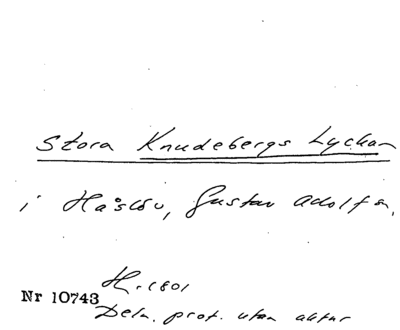 Stora Knudebergs Lyckan
i Håslöv, Gustav Adolf sn.
H. 1801
Nr 10743
Deln. prot. utan aktnr